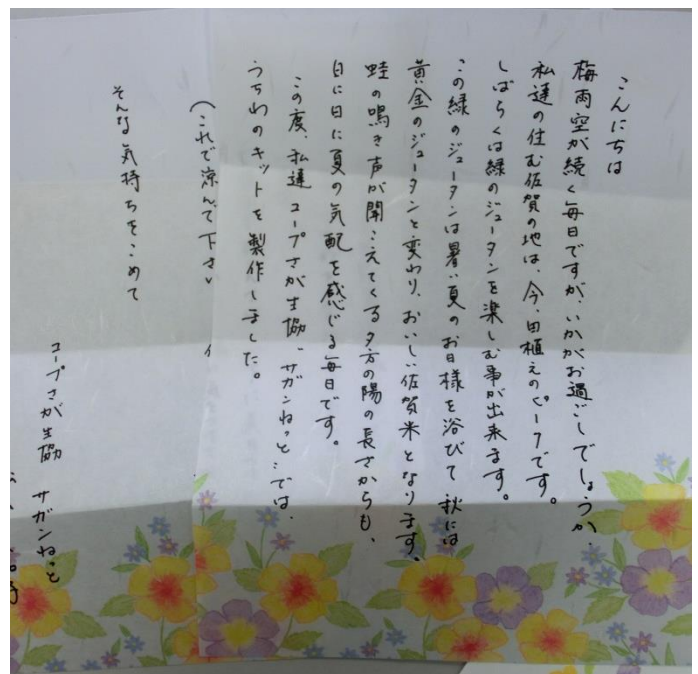 こんにちは
梅雨空が続く毎日ですが、いかがお過ごしでしょうか。
私達の住む佐賀の地は、今、田植えのピークです。
しばらくは緑のジュータンを楽しむ事が出来ます。
この緑のジュータンは暑い夏のお日様を浴びて秋には
黄金のジュータンと変わり、おいしい佐賀米となります。
蛙の鳴き声が聞こえてくる夕方の陽の長さからも、
日に日に夏の気配を感じる毎日です。
この度、私達コープさが生協、サガンねっと:では、
うちわのキットを製作しました。
(これで涼んで下さい
そんな気持ちをこめて
コープさが生協 サガンねっと